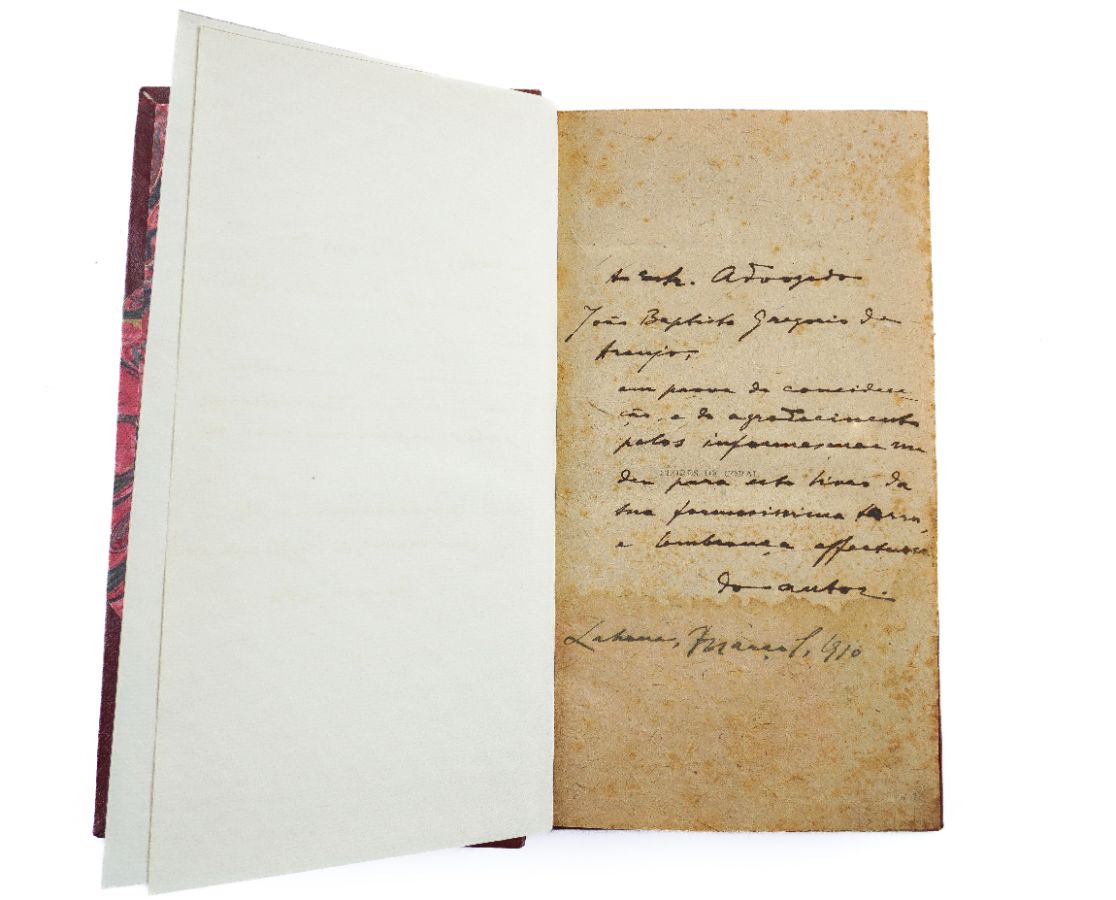 Advogado
João Baptista Gregorio de
Araujo,
em prova de considera-
ção, e de agradecimento
pelos informes que me
FLORES DE CORAL
deu para este livro da
sua formosissima terra,
e lembrança affectuosa
do autor.
Lahane, Março, 1910